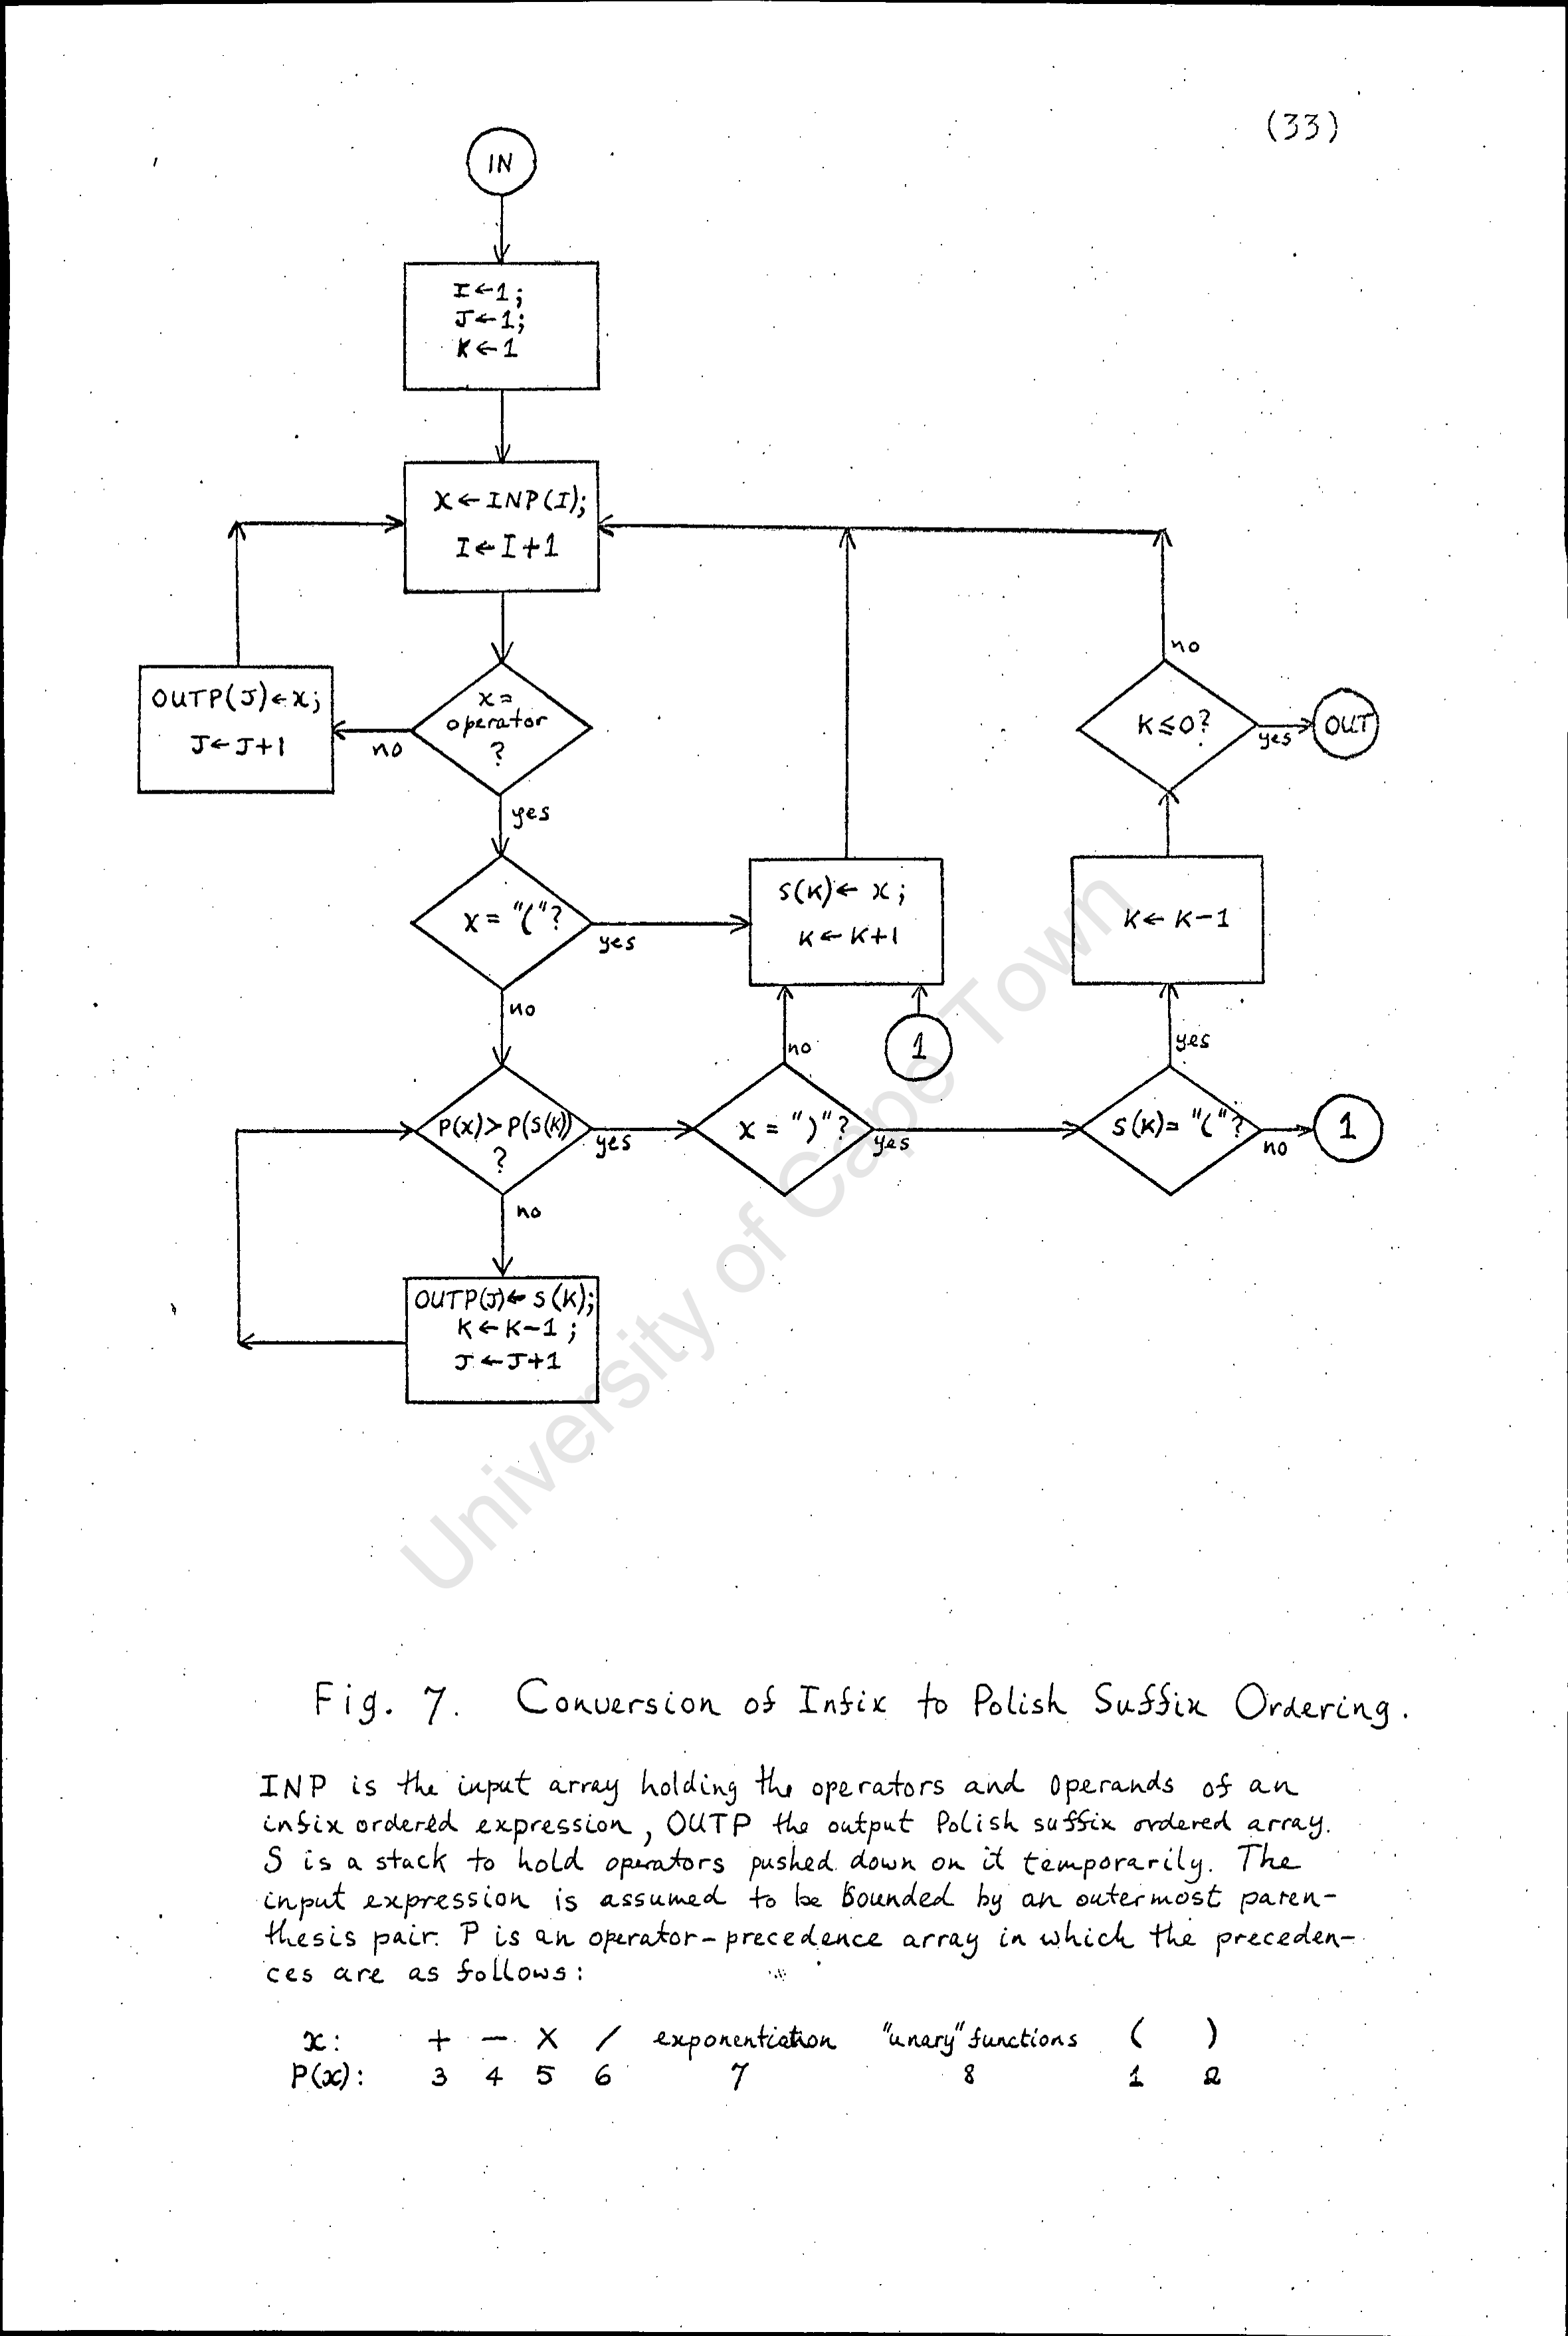 (33)
IN
I←1;
J←1;
K←1
x←INP(I);
I←I+1
OUTP(J)←x;
J←J+1
no
x=
operator
?
yes
no
K≤0?
yes
OUT
x="("?
yes
S(K)← x;
K←K+1
K←K-1
no
1
no
yes
P(x)>P(S(K))
?
yes
x=")"?
yes
S(K)="("?
no
1
no
OUTP(J)←S(K);
K←K-1;
J←J+1
University of Cape Town
Fig. 7. Conversion of Infix to Polish Suffix Ordering.
INP is the input array holding the operators and operands of an
infix ordered expression, OUTP the output Polish suffix ordered array.
S is a stack to hold operators pushed down on it temporarily. The
input expression is assumed to be bounded by an outermost paren-
thesis pair. P is an operator-precedence array in which the preceden-
ces are as follows:
x: + - X / exponentiation "unary" functions ( )
P(x): 3 4 5 6 7 8 1 2